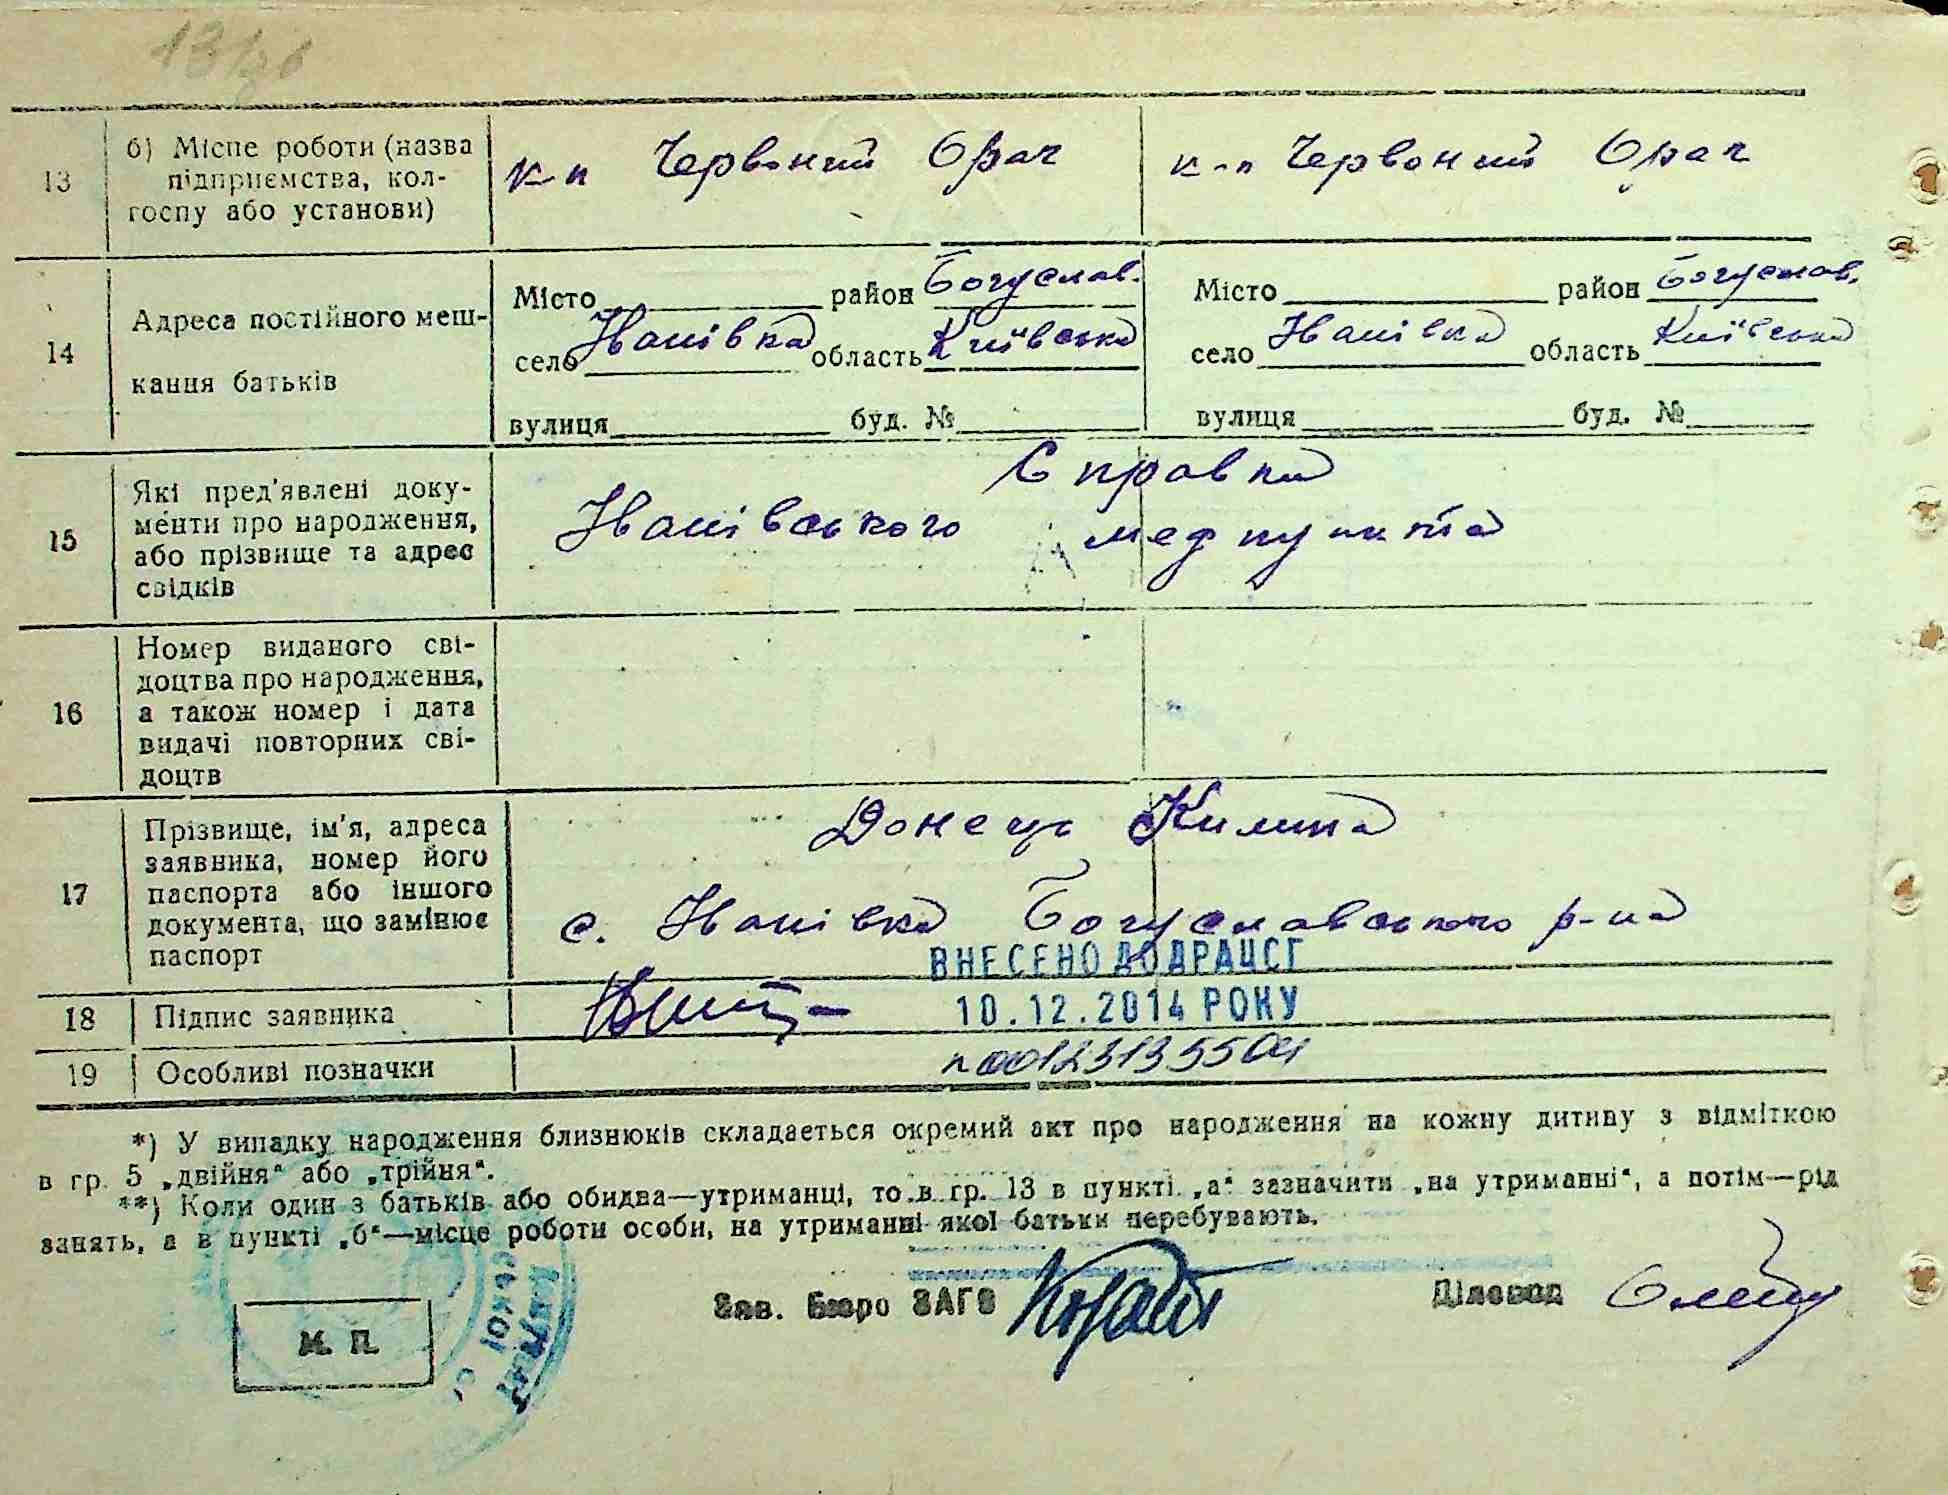 13
б) Місце роботи (назва
підприємства, кол-
госпу або установи)
к-п Червоний Орач
к-п Червоний Орач
14
Адреса постійного меш-
кання батьків
Місто район Богуслав.
село Іванівка область Київська
вулиця буд. №
Місто район Богуслав.
село Іванівка область Київська
вулиця буд. №
15
Які пред'явлені доку-
менти про народження,
або прізвище та адрес
свідків
Справка
Іванівського медпункта
16
Номер виданого сві-
доцтва про народження,
а також номер і дата
видачі повторних сві-
доцтв
17
Прізвище, ім'я, адреса
заявника, номер його
паспорта або іншого
документа, що замінює
паспорт
Донець Килина
с. Іванівка Богуславського р-на
ВНЕСЕНО ДО ДРАЦСГ
10.12.2014 РОКУ
18
Підпис заявника
19
Особливі позначки
п00123135504
*) У випадку народження близнюків складається окремий акт про народження на кожну дитину з відміткою
в гр. 5 „двійня“ або „трійня“.
**) Коли один з батьків або обидва—утриманці, то в гр. 13 в пункті „а“ зазначити „на утриманні“, а потім—рід
занять, а в пункті „б“—місце роботи особи, на утриманні якої батьки перебувають.
Зав. Бюро ЗАГС
Діловод
М. П.